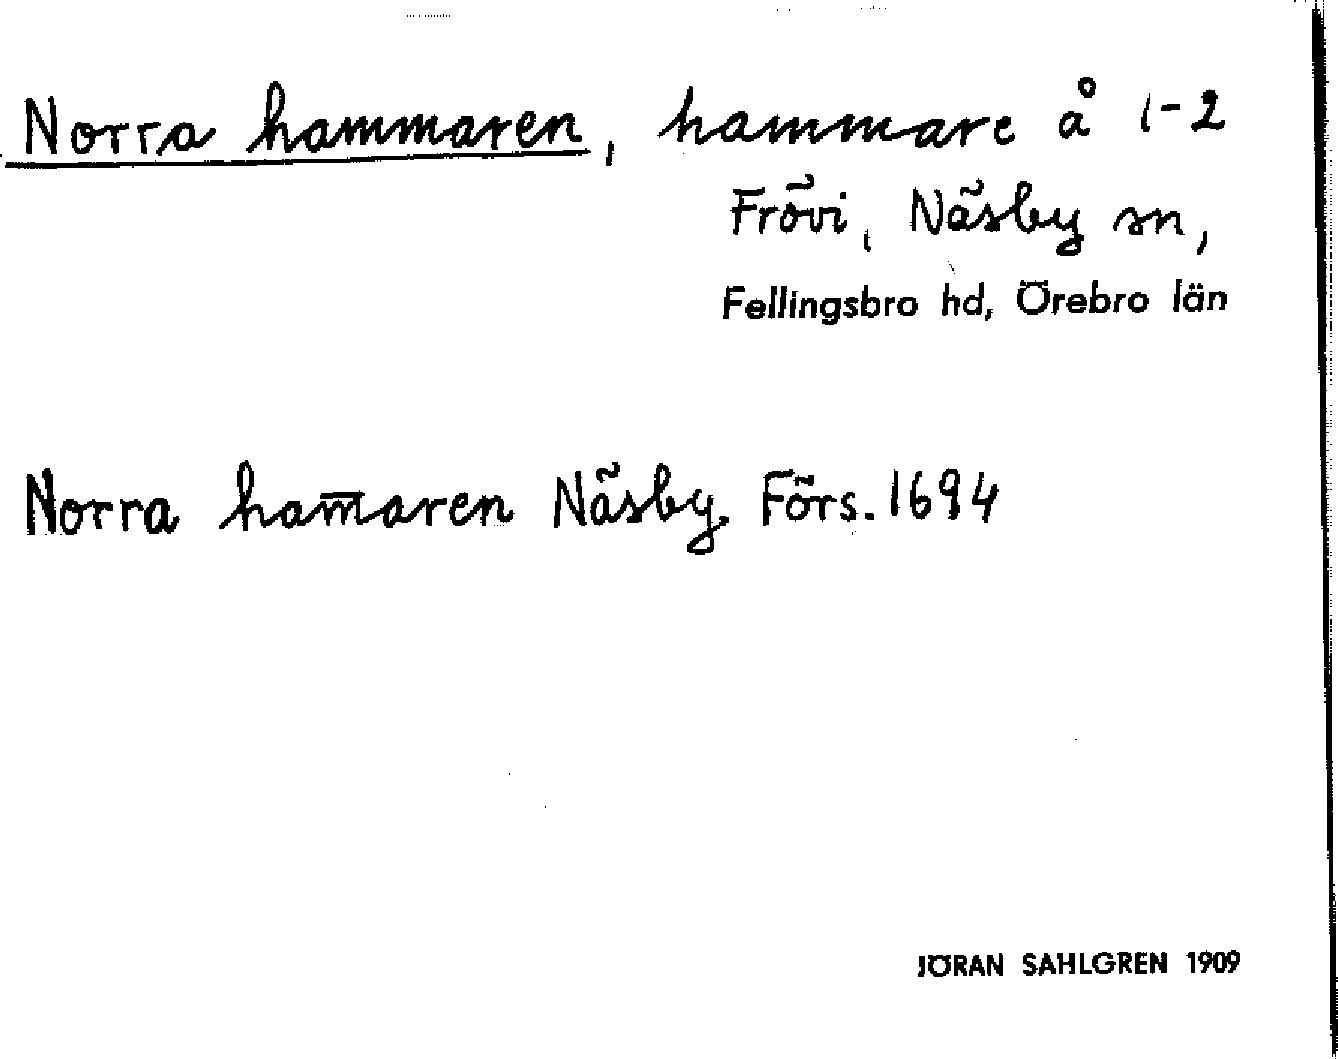 Norra hammaren, hammare å 1-2
Frövi, Näsby sn,
Fellingsbro hd, Örebro län
Norra ham̅aren Näsby. Förs. 1694
JÖRAN SAHLGREN 1909